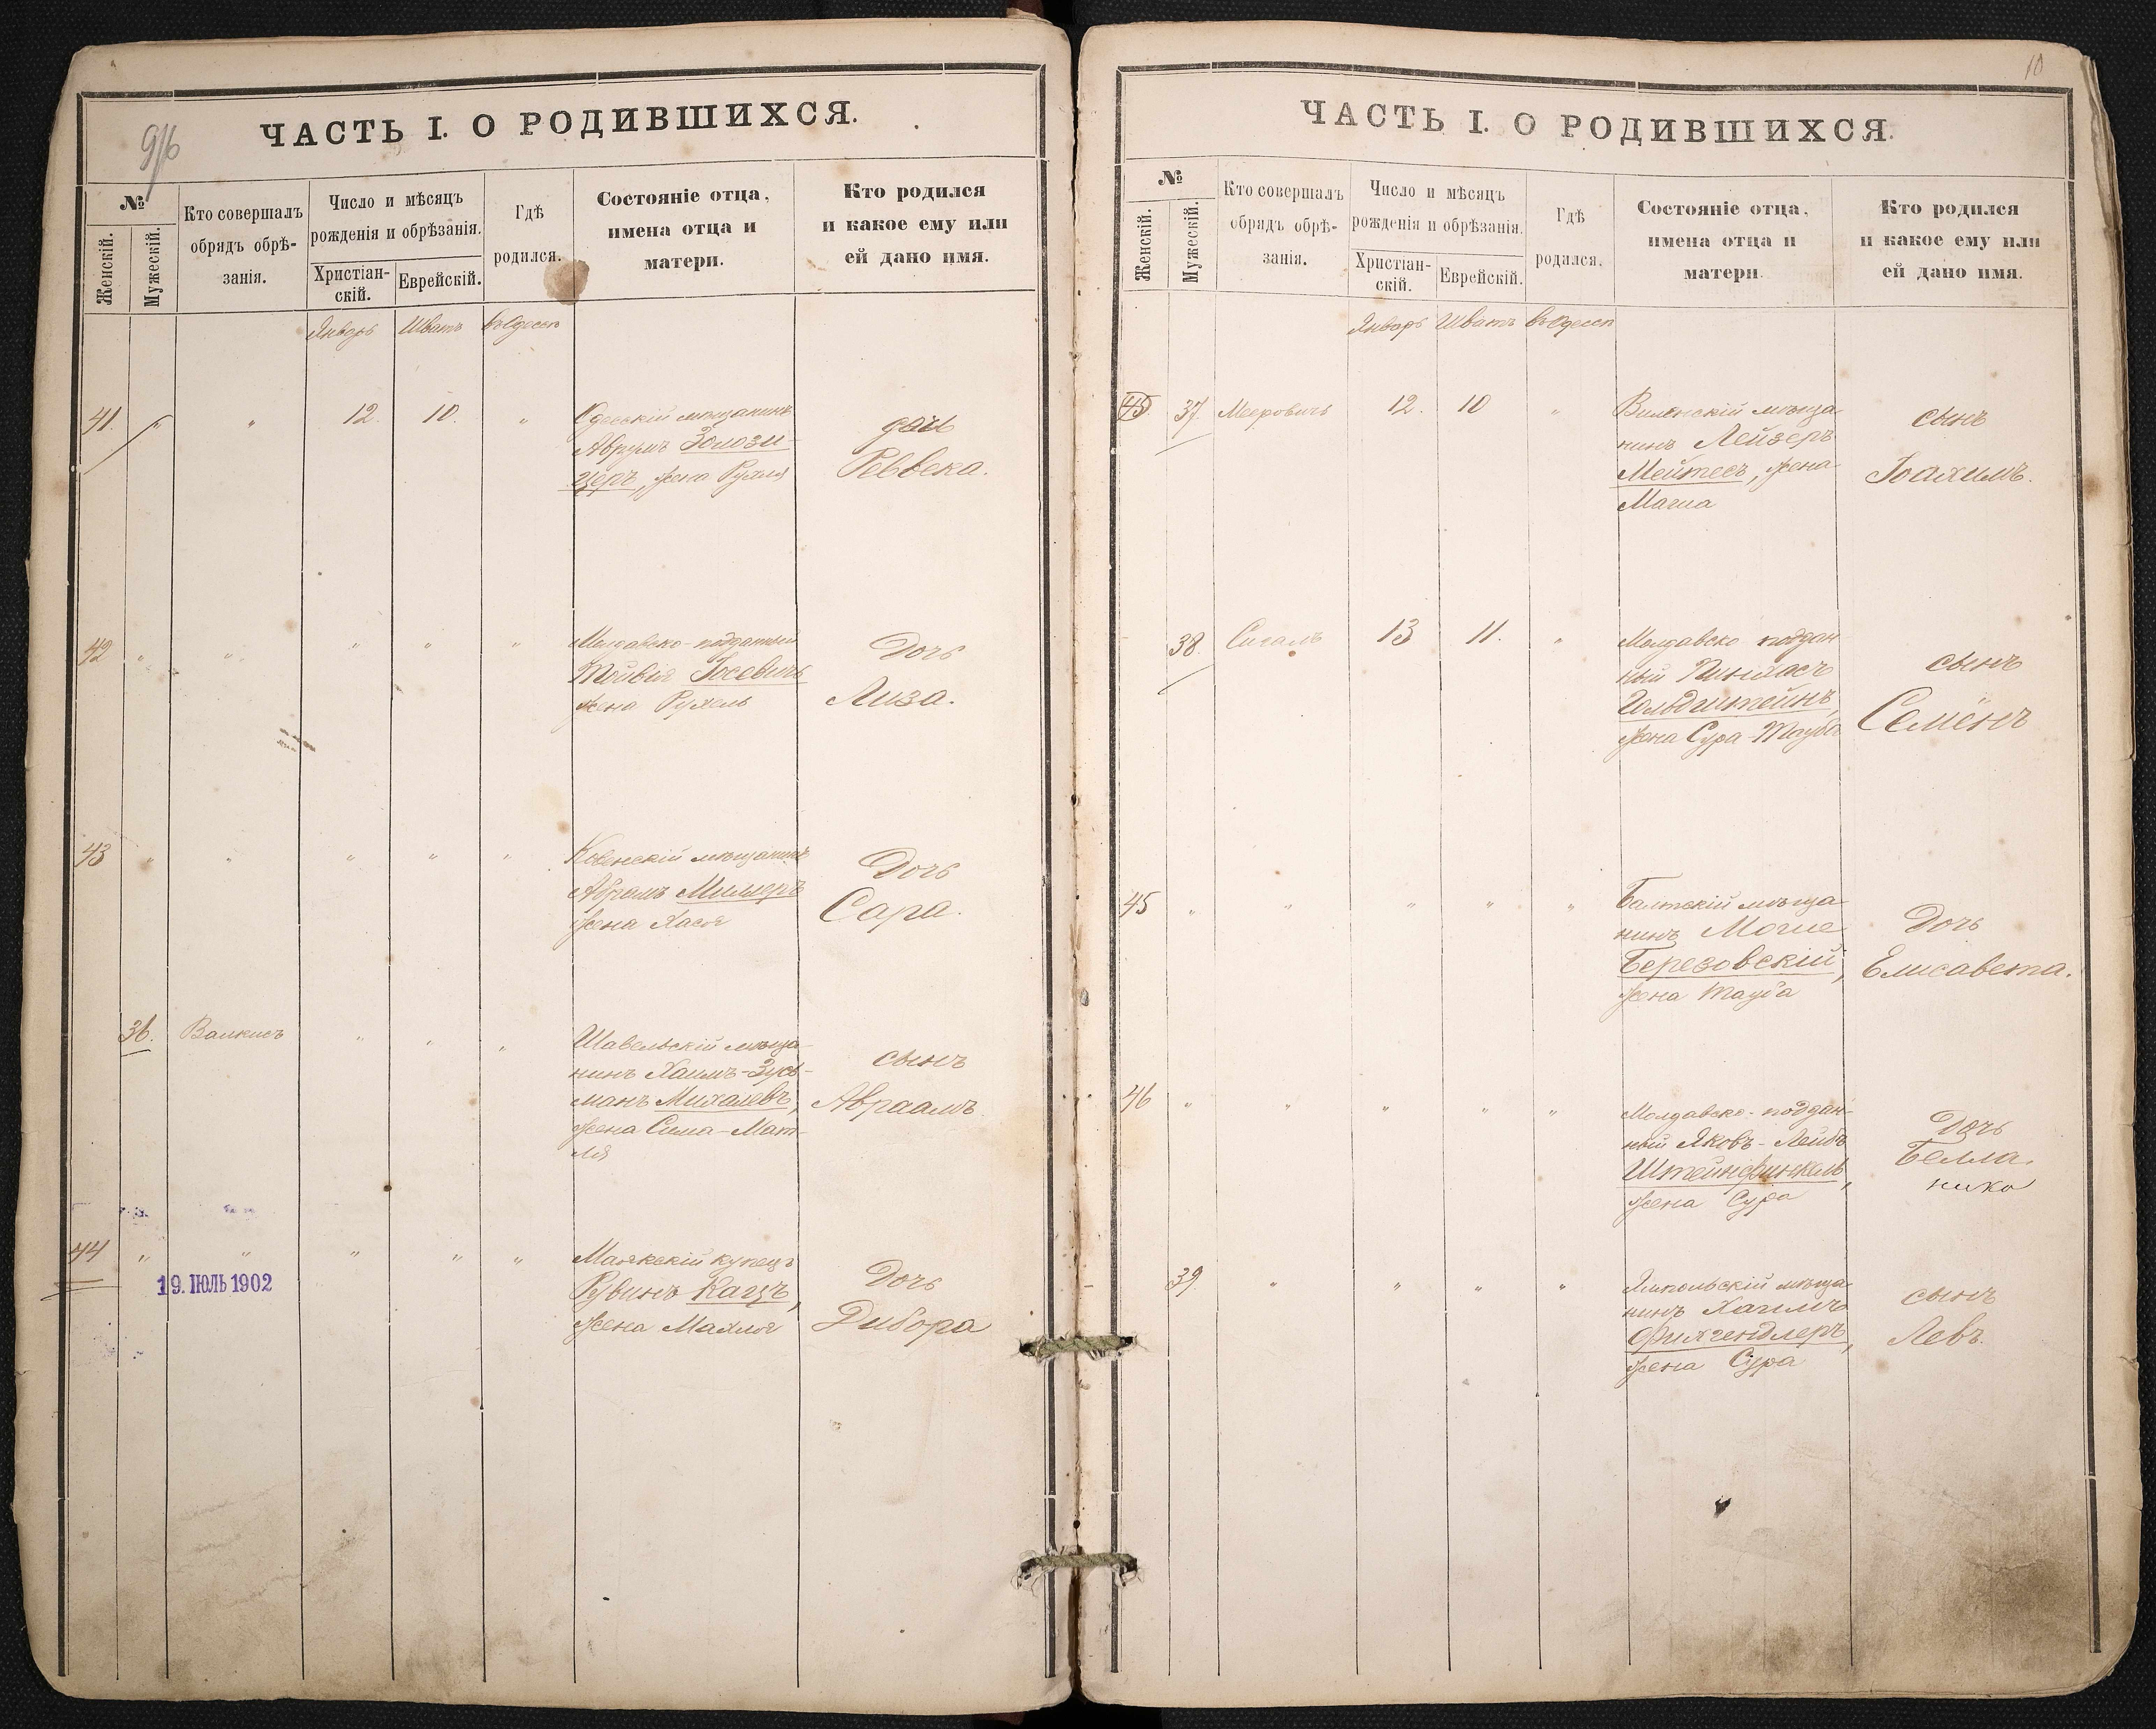 9/6
ЧАСТЬ I. О РОДИВШИХСЯ.
№
Женскій.
Мужескій.
Кто совершалъ
обрядъ обрѣ-
занія.
Число и мѣсяцъ
рожденія и обрѣзанія.
Христіан-
скій.
Еврейскій.
Гдѣ
родился.
Состояніе отца,
имена отца и
матери.
Кто родился
и какое ему или
ей дано имя.
Январь Шватъ въ Одессѣ
41. " " 12. 10. "
Одесскій мѣщанинъ
Аврумъ Золози-
церъ, жена Рухля
дочь
Реввека.
42 " " " " "
Молдавско-подданный
Тойвія Іосевичъ
жена Рухель
Дочь
Лиза.
43 " " " " "
Ковенскій мѣщанинъ
Абрамъ Миллеръ
жена Хася
Дочь
Сара.
36. Валкисъ " " "
Шавельскій мѣща-
нинъ Хаимъ-Зусь-
манъ Михалевъ,
жена Сима-Мат-
ля
сынъ
Авраамъ.
44 " " " " "
19. ІЮЛЬ 1902
Маякскій купецъ
Рувинъ Кацъ,
жена Махля
Дочь
Дибора
10
ЧАСТЬ I. О РОДИВШИХСЯ.
№
Женскій.
Мужескій.
Кто совершалъ
обрядъ обрѣ-
занія.
Число и мѣсяцъ
рожденія и обрѣзанія.
Христіан-
скій.
Еврейскій.
Гдѣ
родился.
Состояніе отца,
имена отца и
матери.
Кто родился
и какое ему или
ей дано имя.
Январь Шватъ въ Одессѣ
45 37. Мееровичъ 12. 10 "
Виленскій мѣща
нинъ Лейзеръ
Мейтесъ, жена
Маша
сынъ
Іоахимъ.
38. Сигалъ 13 11. "
Молдавско поддан
ный Пинхасъ
Гольдштейнъ,
жена Сура-Тауба
сынъ
Семёнъ
45 " " " " "
Балтскій мѣща
нинъ Мошe
Березовскій,
жена Тауба
Дочь
Елисавета.
46 " " " " "
Молдавско-поддан-
ный Яковъ-Лейбъ
Штейнфинкель,
жена Сура
Дочь
Белла.
39. " " " "
Ямпольскій мѣща
нинъ Хаимъ
Фишгендлеръ,
жена Сура
сынъ
Левъ.